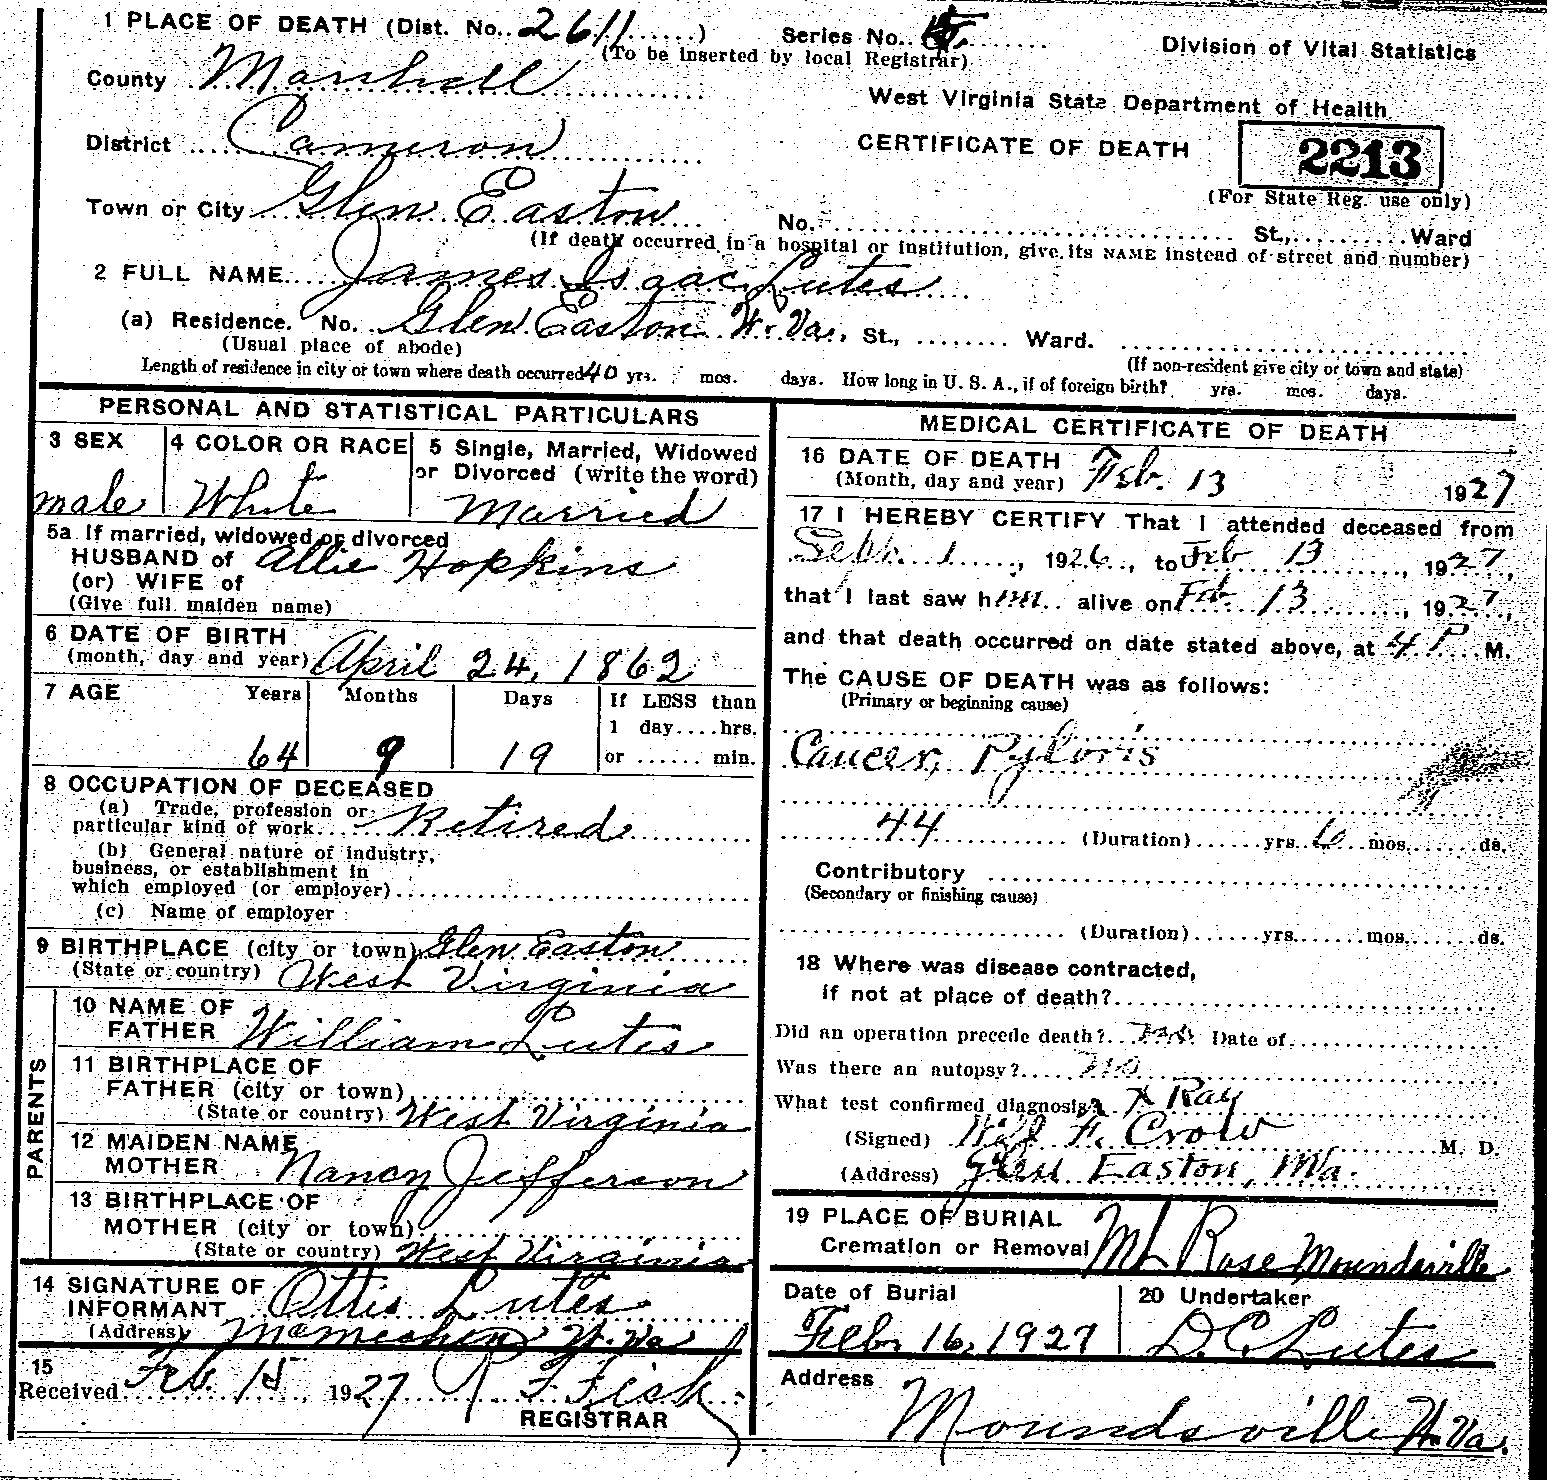 1 PLACE OF DEATH (Dist. No. 2611 ) Series No.
(To be inserted by local Registrar)
Division of Vital Statistics
County Marshall
West Virginia State Department of Health
District Cameron
CERTIFICATE OF DEATH 2213
(For State Reg. use only)
Town or City Glen Easton
No. St., Ward
(If death occurred in a hospital or institution, give its NAME instead of street and number)
2 FULL NAME James Isaac Lutes
(a) Residence. No. Glen Easton W. Va., St., Ward.
(Usual place of abode) (If non-resident give city or town and state)
Length of residence in city or town where death occurred 40 yrs. mos. days. How long in U. S. A., if of foreign birth? yrs. mos. days.
PERSONAL AND STATISTICAL PARTICULARS
3 SEX
male
4 COLOR OR RACE
White
5 Single, Married, Widowed
or Divorced (write the word)
Married
5a If married, widowed or divorced
HUSBAND of Allie Hopkins
(or) WIFE of
(Give full maiden name)
6 DATE OF BIRTH
(month, day and year) April 24, 1862
7 AGE Years Months Days If LESS than
1 day....hrs.
64 9 19 or ...... min.
8 OCCUPATION OF DECEASED
(a) Trade, profession or
particular kind of work Retired
(b) General nature of industry,
business, or establishment in
which employed (or employer)
(c) Name of employer
9 BIRTHPLACE (city or town) Glen Easton
(State or country) West Virginia
PARENTS
10 NAME OF
FATHER William Lutes
11 BIRTHPLACE OF
FATHER (city or town)
(State or country) West Virginia
12 MAIDEN NAME
MOTHER Nancy Jefferson
13 BIRTHPLACE OF
MOTHER (city or town)
(State or country) West Virginia
14 SIGNATURE OF
INFORMANT Ottis Lutes
(Address) McMechen W. Va
15
Received Feb. 15, 1927 F. Fish
REGISTRAR
MEDICAL CERTIFICATE OF DEATH
16 DATE OF DEATH
(Month, day and year) Feb. 13 1927
17 I HEREBY CERTIFY That I attended deceased from
Sept. 1, 1926, to Feb 13, 1927,
that I last saw him alive on Feb. 13, 1927,
and that death occurred on date stated above, at 4 P. M.
The CAUSE OF DEATH was as follows:
(Primary or beginning cause)
Cancer, Pyloris
44 (Duration) yrs. 6 mos. ds.
Contributory
(Secondary or finishing cause)
(Duration) yrs. mos. ds.
18 Where was disease contracted,
if not at place of death?
Did an operation precede death? no. Date of
Was there an autopsy? no
What test confirmed diagnosis? X Ray
(Signed) F. Crow M. D.
(Address) Glen Easton, Wa.
19 PLACE OF BURIAL
Cremation or Removal Mt Rose Moundsville
Date of Burial
Feb. 16, 1927
20 Undertaker
D.C. Lutes
Address
Moundsville W. Va.